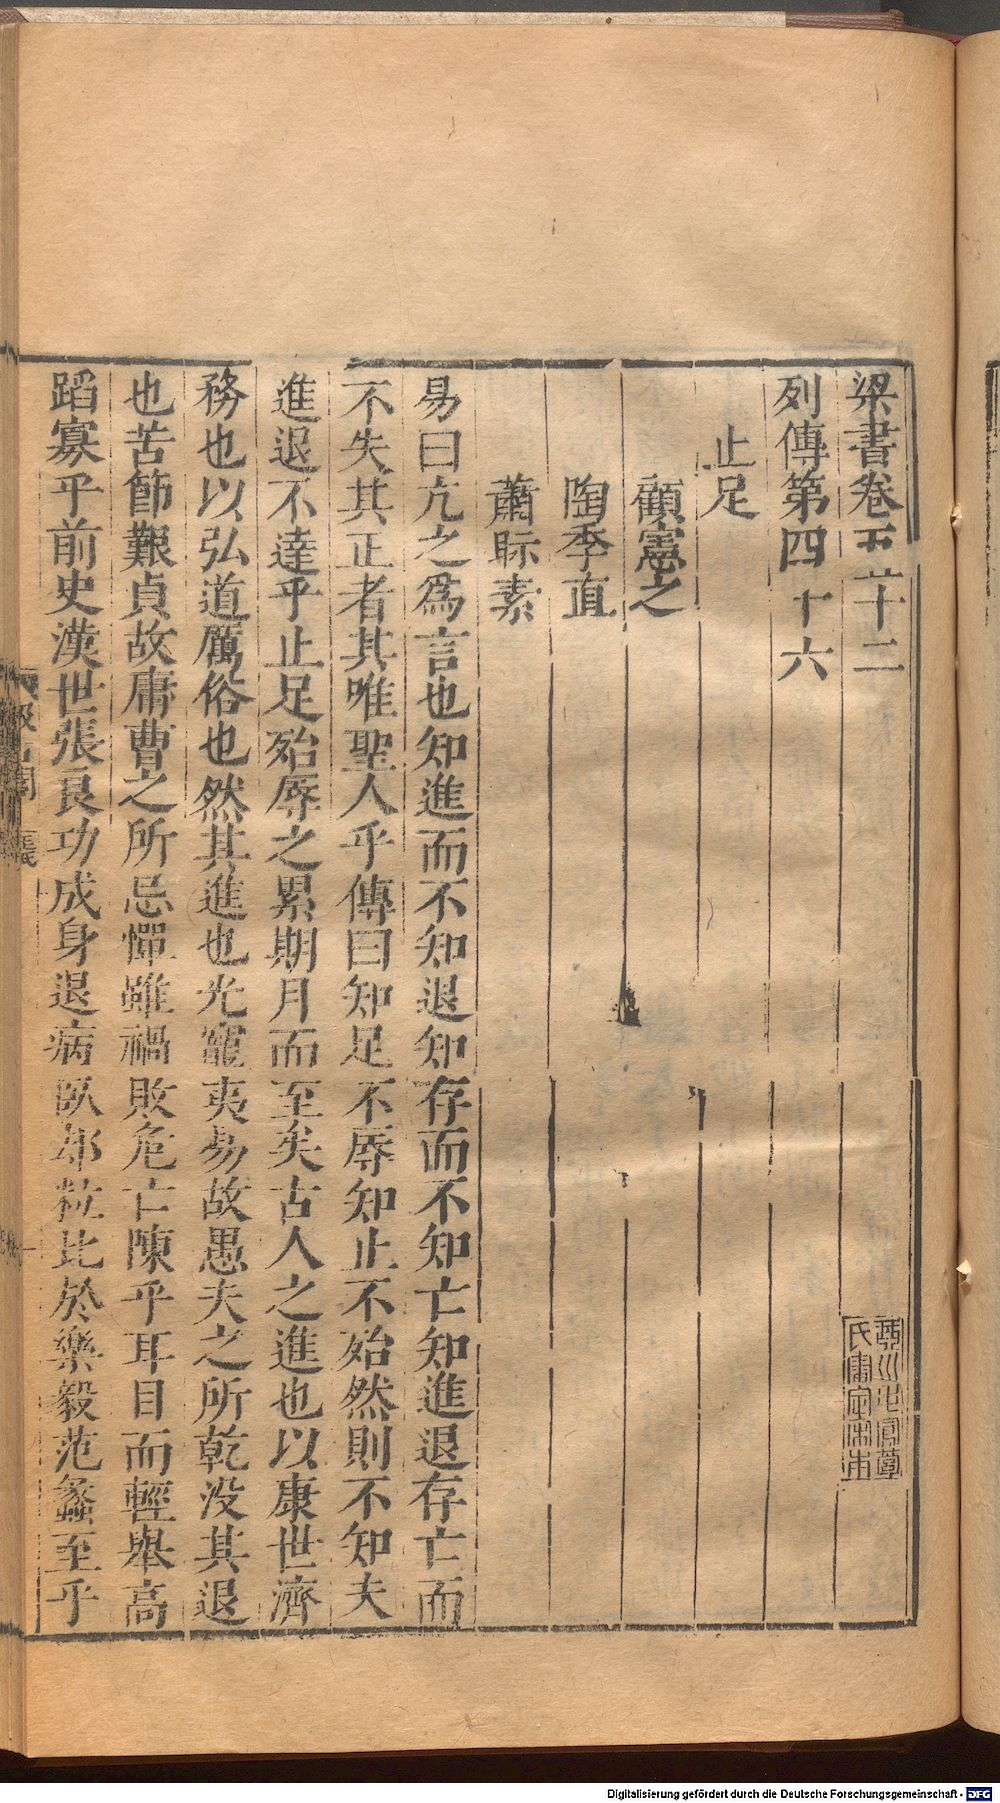 梁書卷五十二
列傳第四十六
止足
顧憲之
陶季直
蕭眎素
易曰亢之爲言也知進而不知退知存而不知亡知進退存亡而
不失其正者其唯聖人乎傳曰知足不辱知止不殆然則不知夫
進退不達乎止足殆辱之累期月而至矣古人之進也以康世濟
務也以弘道厲俗也然其進也光寵夷易故愚夫之所乾没其退
也苦節艱貞故庸曹之所忌憚雖禍敗危亡陳乎耳目而輕舉高
蹈寡乎前史漢世張良功成身退病臥却粒比於樂毅范蠡至乎
Digitalisierung gefördert durch die Deutsche Forschungsgemeinschaft - DFG